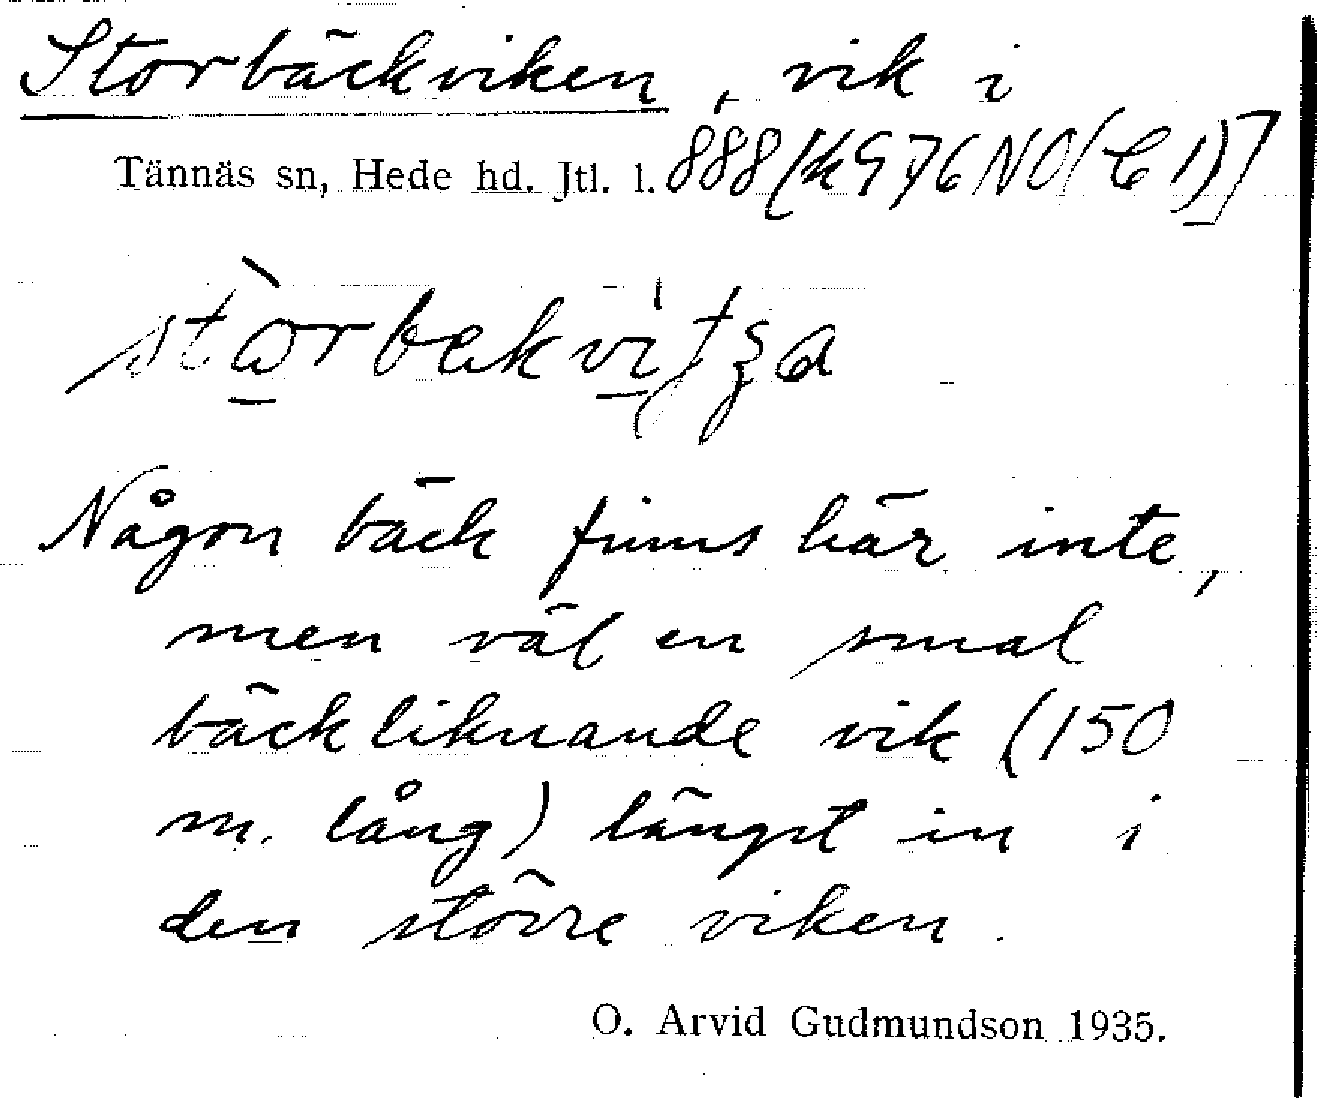 Storbäckviken, vik i
Tännäs sn, Hede hd. Jtl. l. 888 [K976NO(C1)]
Någon bäck finns här inte,
men väl en smal
bäckliknande vik (150
m. lång) längst in i
den större viken.
O. Arvid Gudmundson 1935.